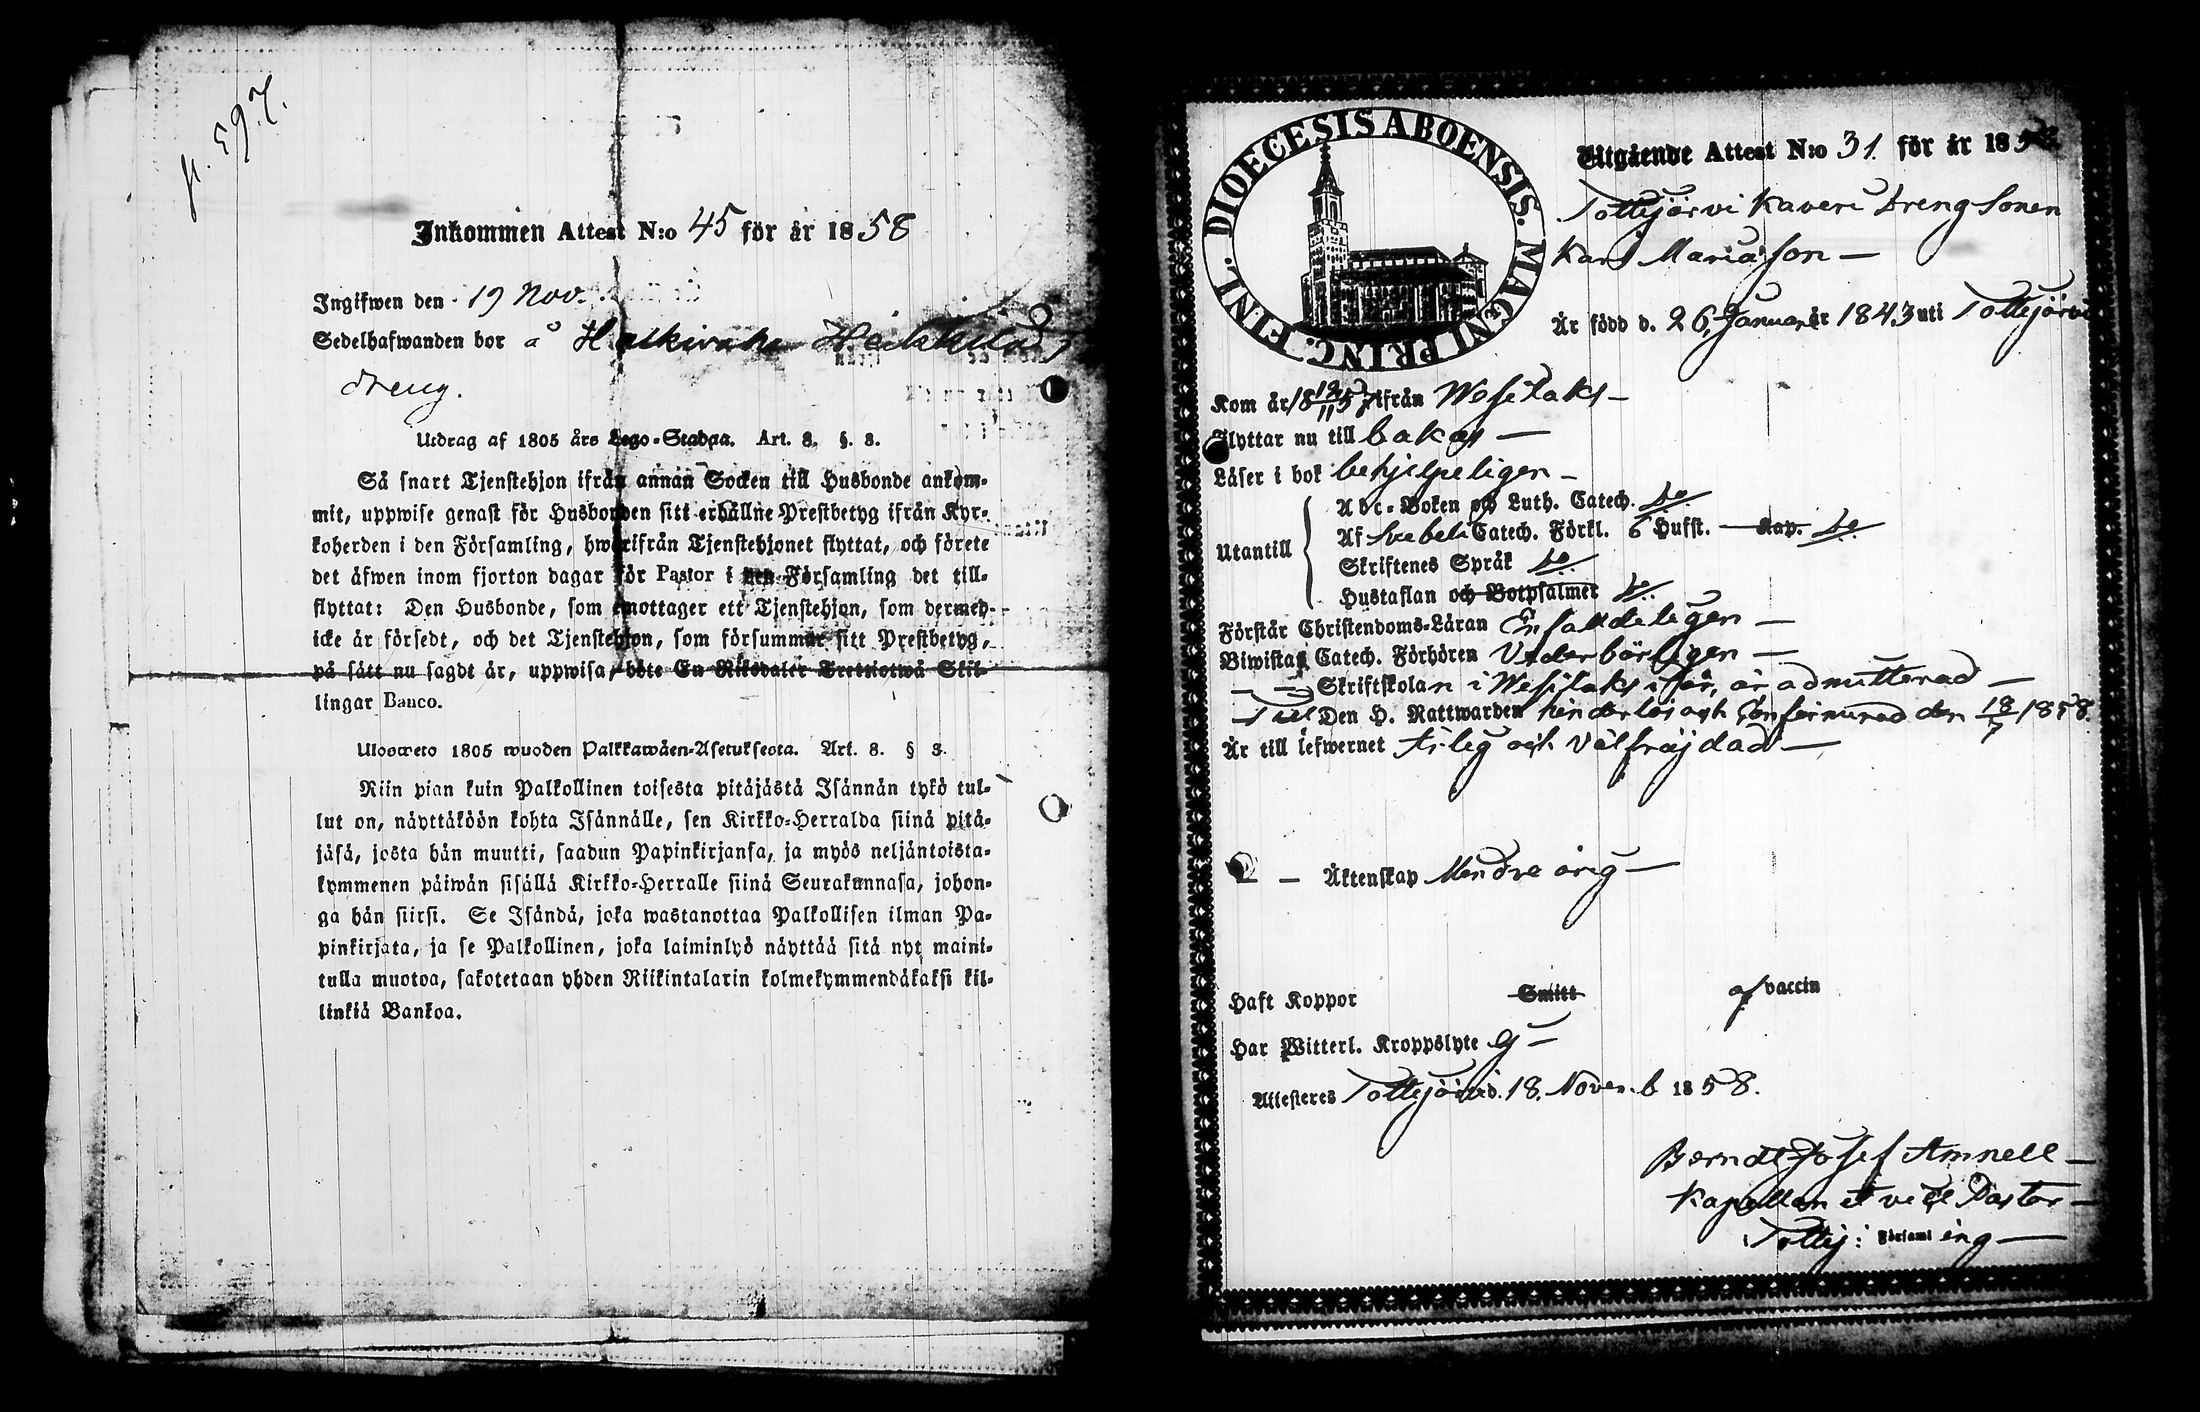 p. 597.
Inkommen Attest N:o 45 för år 1858
Ingifwen den 19 Nov.
Sedelhafwanden bor å
dreng.
Utdrag af 1805 års Lego-Stadga. Art. 8. §. 3.
Så snart Tjenstehjon ifrån annan Socken till Husbonde ankom-
mit, uppwise genast för Husbonden sitt erhållne Prestbetyg ifrån Kyr-
koherden i den Församling, hwarifrån Tjenstehjonet flyttat, och förete
det äfwen inom fjorton dagar för Pastor i den Församling det till-
flyttat: Den Husbonde, som emottager ett Tjenstehjon, som dermed
icke är försedt, och det Tjenstehjon, som försummar sitt Prestbetyg,
på sätt nu sagdt är, uppwisa, böte En Riksdaler Trettiotwå Skil-
lingar Banco.
Ulosweto 1805 wuoden Palkkawäen-Asetuksesta. Art. 8. § 3.
Niin pian kuin Palkollinen toisesta pitäjästä Isännän tykö tul-
lut on, näyttäköön kohta Isännälle, sen Kirkko-Herralda siinä pitä-
jäsä, josta hän muutti, saadun Papinkirjansa, ja myös neljäntoista-
kymmenen päiwän sisällä Kirkko-Herralle siinä Seurakunnasa, johon-
ga hän siirsi. Se Isändä, joka wastanottaa Palkollisen ilman Pa-
pinkirjata, ja se Palkollinen, joka laiminlyö näyttää sitä nyt maini-
tulla muotoa, sakotetaan yhden Riikintalarin kolmekymmendäkaksi kil-
linkiä Bankoa.
DIOECESIS ABOENSIS. MAGNI PRINC. FINL.
Utgående Attest N:o 31. för år 1858.
Tottijärvi Kaveri Dreng Sonen
Karl Mariæ son —
Är född d. 26 Januari år 1843 uti Tottijärvi
Kom år 18 12/11 57 ifrån Wesilaks —
Flyttar nu till bakas —
Läser i bok behjelpeligen —
Utantill
Abc-Boken och Luth. Catech. do
Af Svebeli Catech. Förkl. 6 Hufst. — Kap. do
Skriftenes Språk do
Hustaflan och Botpsalmer do
Förstår Christendoms-Läran Enfaldeligen —
Biwistat Catech. Förhören Vederbörligen —
Skriftskolan i Wesilaks i får, är admitterad —
Till Den H. Nattwarden hinderlös och Confirmerad den 18/7 1858.
Är till lefwernet ärlig och välfräjdad —
— Äktenskap Mendre årig —
Haft Koppor Smitt af vaccin
Har Witterl. Kroppslyte ej —
Attesteres Tottijärvi d. 18. Novemb 1858.
Berndt Josef Amnell —
Kapellan et vice Pastor —
i Tottij: Församling —